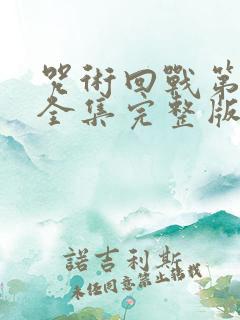 咒術回戰第
全集完整版
諾吉利斯
未经同意禁止转载